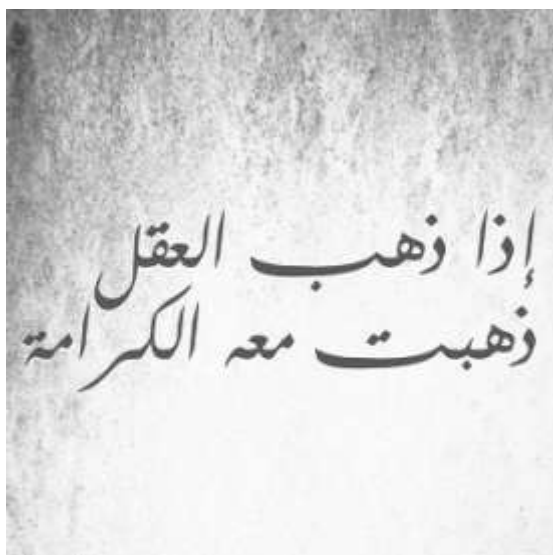 إذا ذهب العقل
ذهبت معه الكرامة